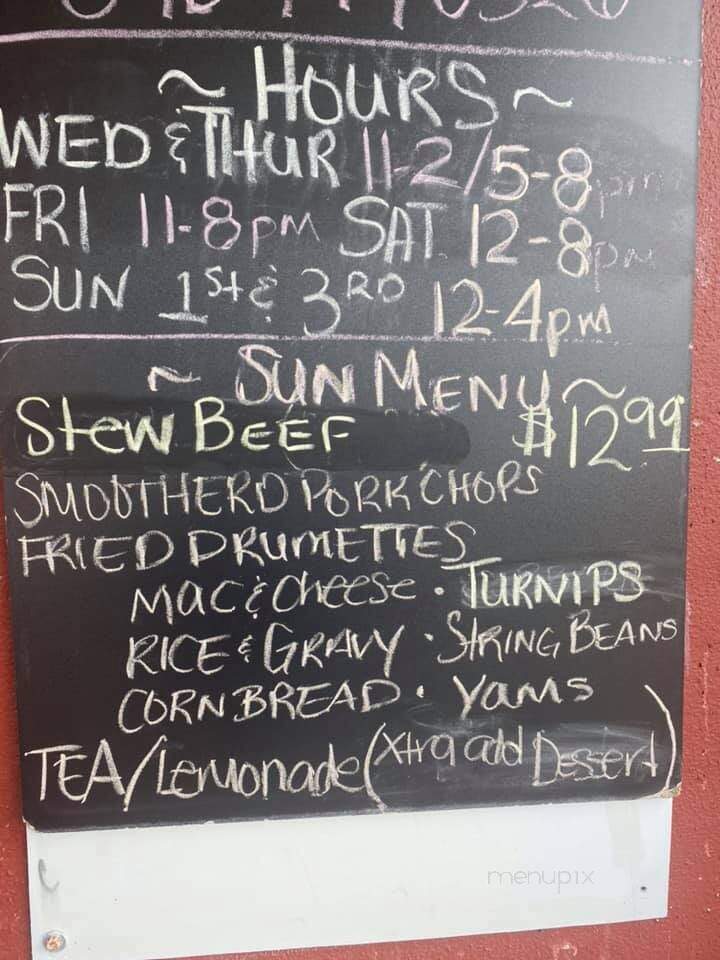 ~ HOURS ~
WED & THUR 11-2/5-8pm
FRI 11-8pm SAT 12-8pm
SUN 1st & 3RD 12-4pm
~ SUN MENU ~
Stew BEEF $12.99
SMOOTHERD PORK CHOPS
FRIED DRUMETTES
MAC & Cheese · TURNIPS
RICE & GRAVY · STRING BEANS
CORNBREAD · Yams
TEA/Lemonade (Xtra add Dessert)
menupix